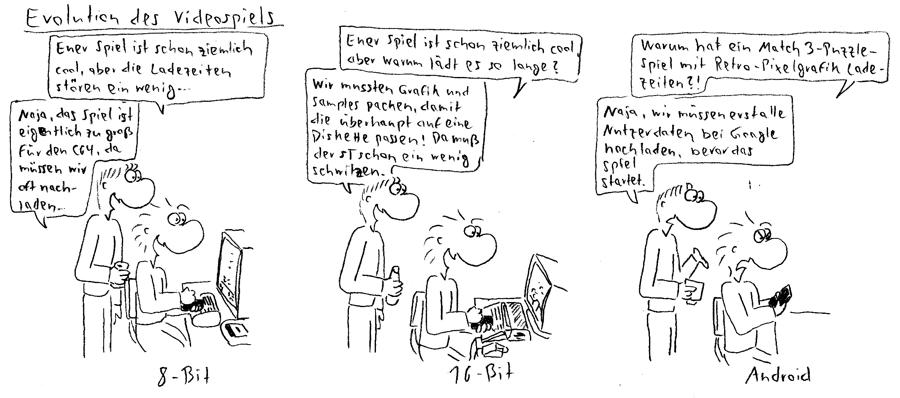 Evolution des Videospiels
Euer Spiel ist schon ziemlich
cool, aber die Ladezeiten
stören ein wenig...
Naja, das Spiel ist
eigentlich zu groß
für den C64, da
müssen wir
oft nach-
laden...
8-Bit
Euer Spiel ist schon ziemlich cool,
aber warum lädt es so lange?
Wir mussten Grafik und
Samples packen, damit
die überhaupt auf eine
Diskette passen! Da muß
der ST schon ein wenig
schwitzen.
16-Bit
Warum hat ein Match 3-Puzzle-
spiel mit Retro-Pixelgrafik Lade-
zeiten?!
Naja, wir müssen erst alle
Nutzerdaten bei Google
hochladen, bevor das
Spiel
startet.
Android